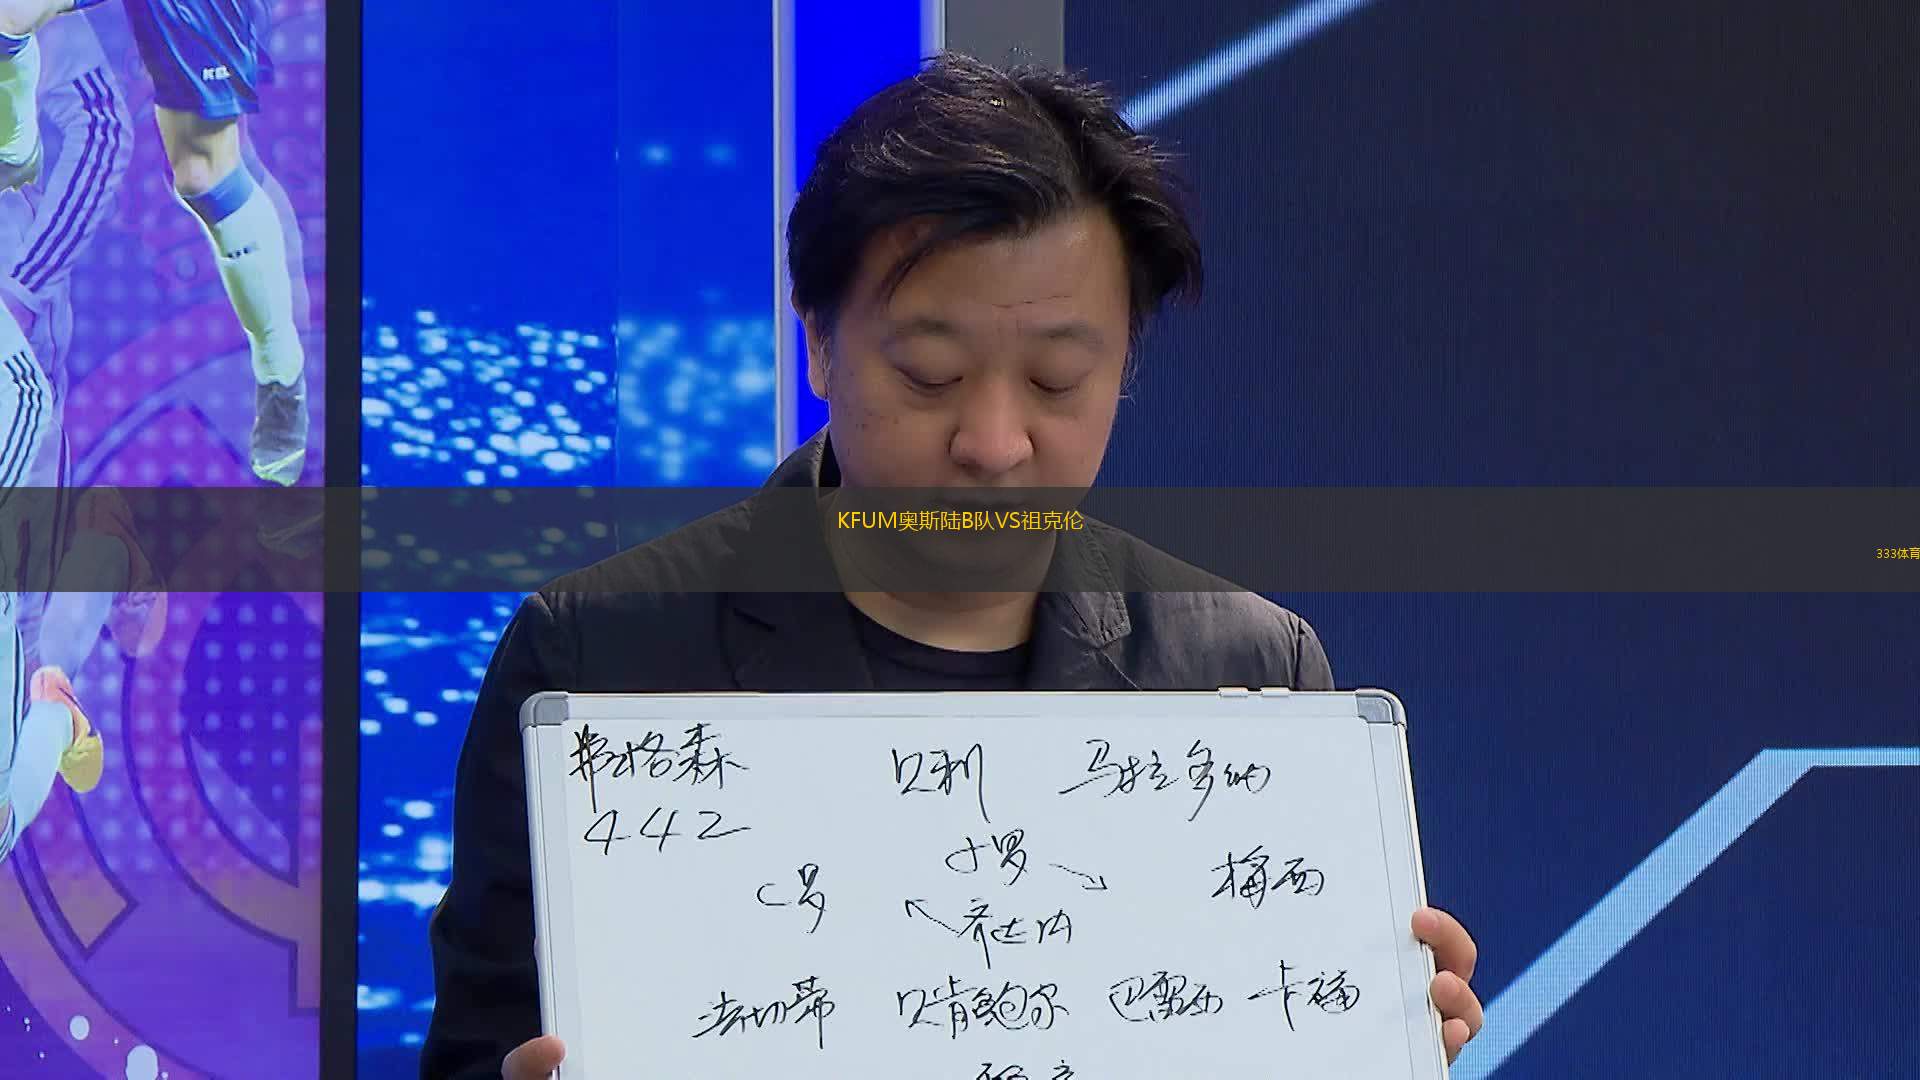 KFUM奥斯陆B队VS祖克伦
333体育
弗格森 贝利 马拉多纳
442
C罗 小罗 梅西
齐达内
法切蒂 贝肯鲍尔 巴雷西 卡福